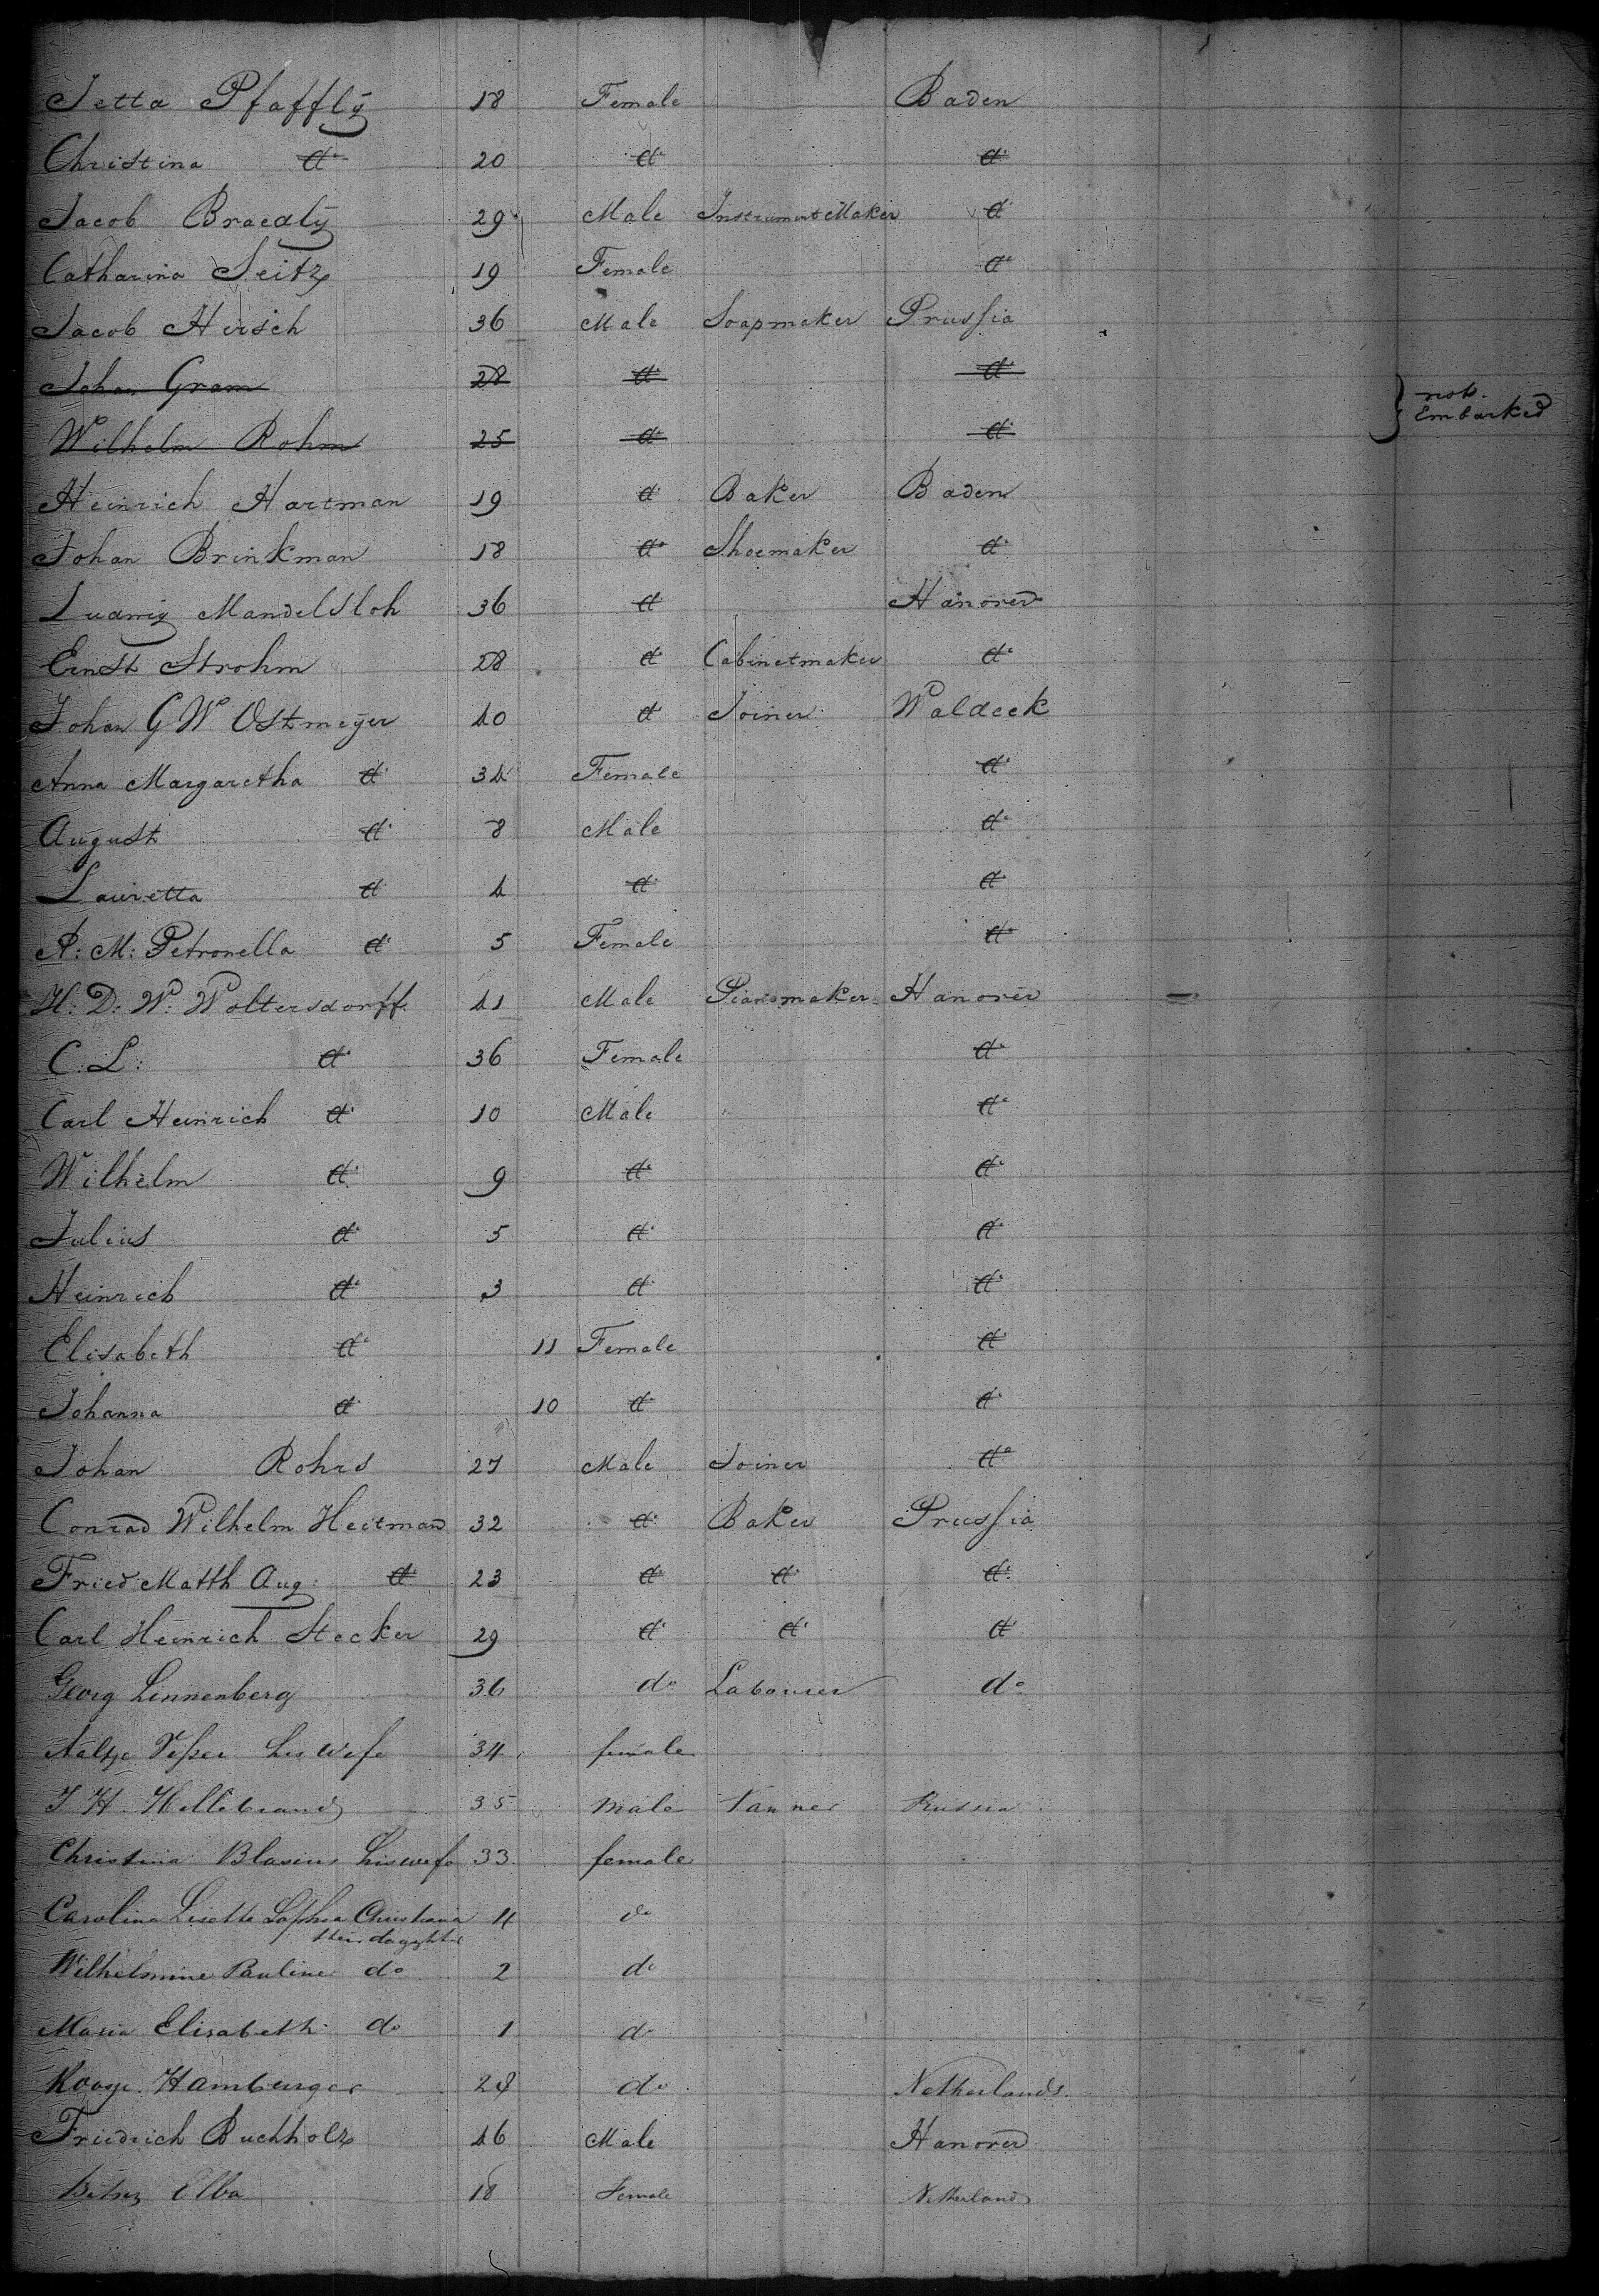 Jetta Pfaffly 18 Female Baden
Christina do 20 do do
Jacob Braedly 29 Male Instrument Maker do
Catharina Seitz 19 Female do
Jacob Hirsch 36 Male Soapmaker Prussia
Johan Gram 28 do do
not
Embarked
Wilhelm Rohm 25 do do
Heinrich Hartman 19 do Baker Baden
Johan Brinkman 18 do Shoemaker do
Ludwig Mandelsloh 36 do Hanover
Ernst Strohm 28 do Cabinetmaker do
Johan G W Ostmeyer 40 do Joiner Waldeck
Anna Margaretha do 34 Female do
August do 8 Male do
Lauretta do 4 do do
A: M: Petronella do 5 Female do
H: D: W: Woltersdorff 41 Male Pianomaker Hanover
C: L: do 36 Female do
Carl Heinrich do 10 Male do
Wilhelm do 9 do do
Julius do 5 do do
Heinrich do 3 do do
Elisabeth do 11 Female do
Johanna do 10 do do
Johan Rohrs 27 Male Joiner do
Conrad Wilhelm Heitman 32 do Baker Prussia
Fried Matth Aug do 23 do do do
Carl Heinrich Stecker 29 do do do
Georg Linnenberg 36 do Labourer do
his wife 34 female
J H Hellebrand 35 male Tanner
Christina Blasius his wife 33 female
Carolina Lisette Sophia Christiana 4 do
their daughter
Wilhelmine Pauline do 2 do
Maria Elisabeth do 1 do
Roosje Hamburger 28 do Netherlands
Friedrich Buchholz 46 Male Hanover
Betsey Elba 18 Female Netherlands